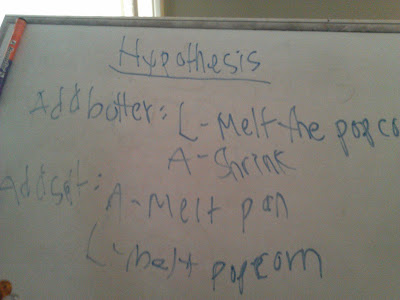 Hypothesis
Add butter: L-Melt the popco
A-Shrink
Add salt: A-Melt pan
L-melt popcorn